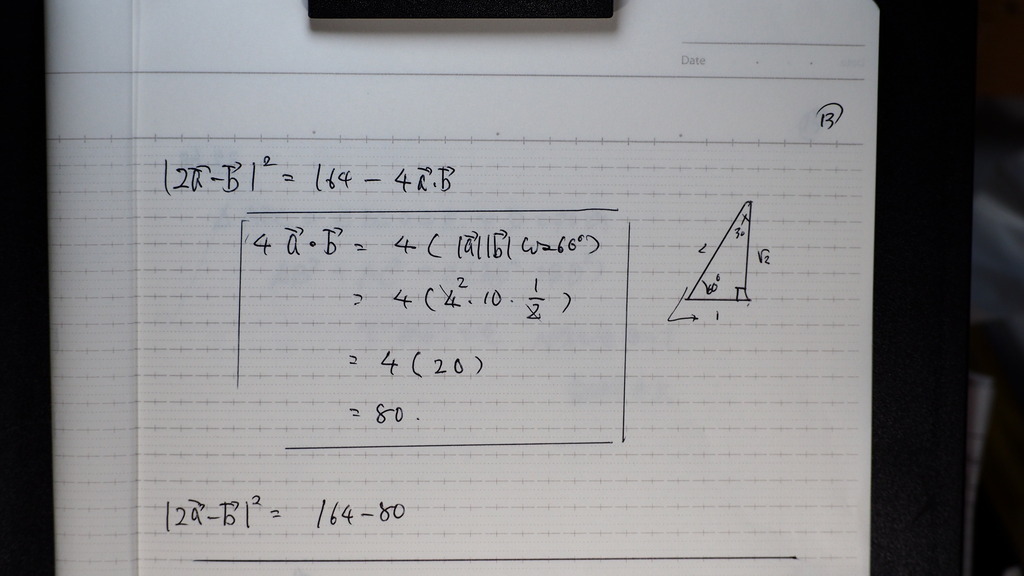 Date
13
|2a⃗-b⃗|² = 164 - 4a⃗·b⃗
4 a⃗·b⃗ = 4(|a⃗||b⃗| cos60°)
= 4(4²·10·1/2)
= 4(20)
= 80.
2
30
√2
60°
1
|2a⃗-b⃗|² = 164-80